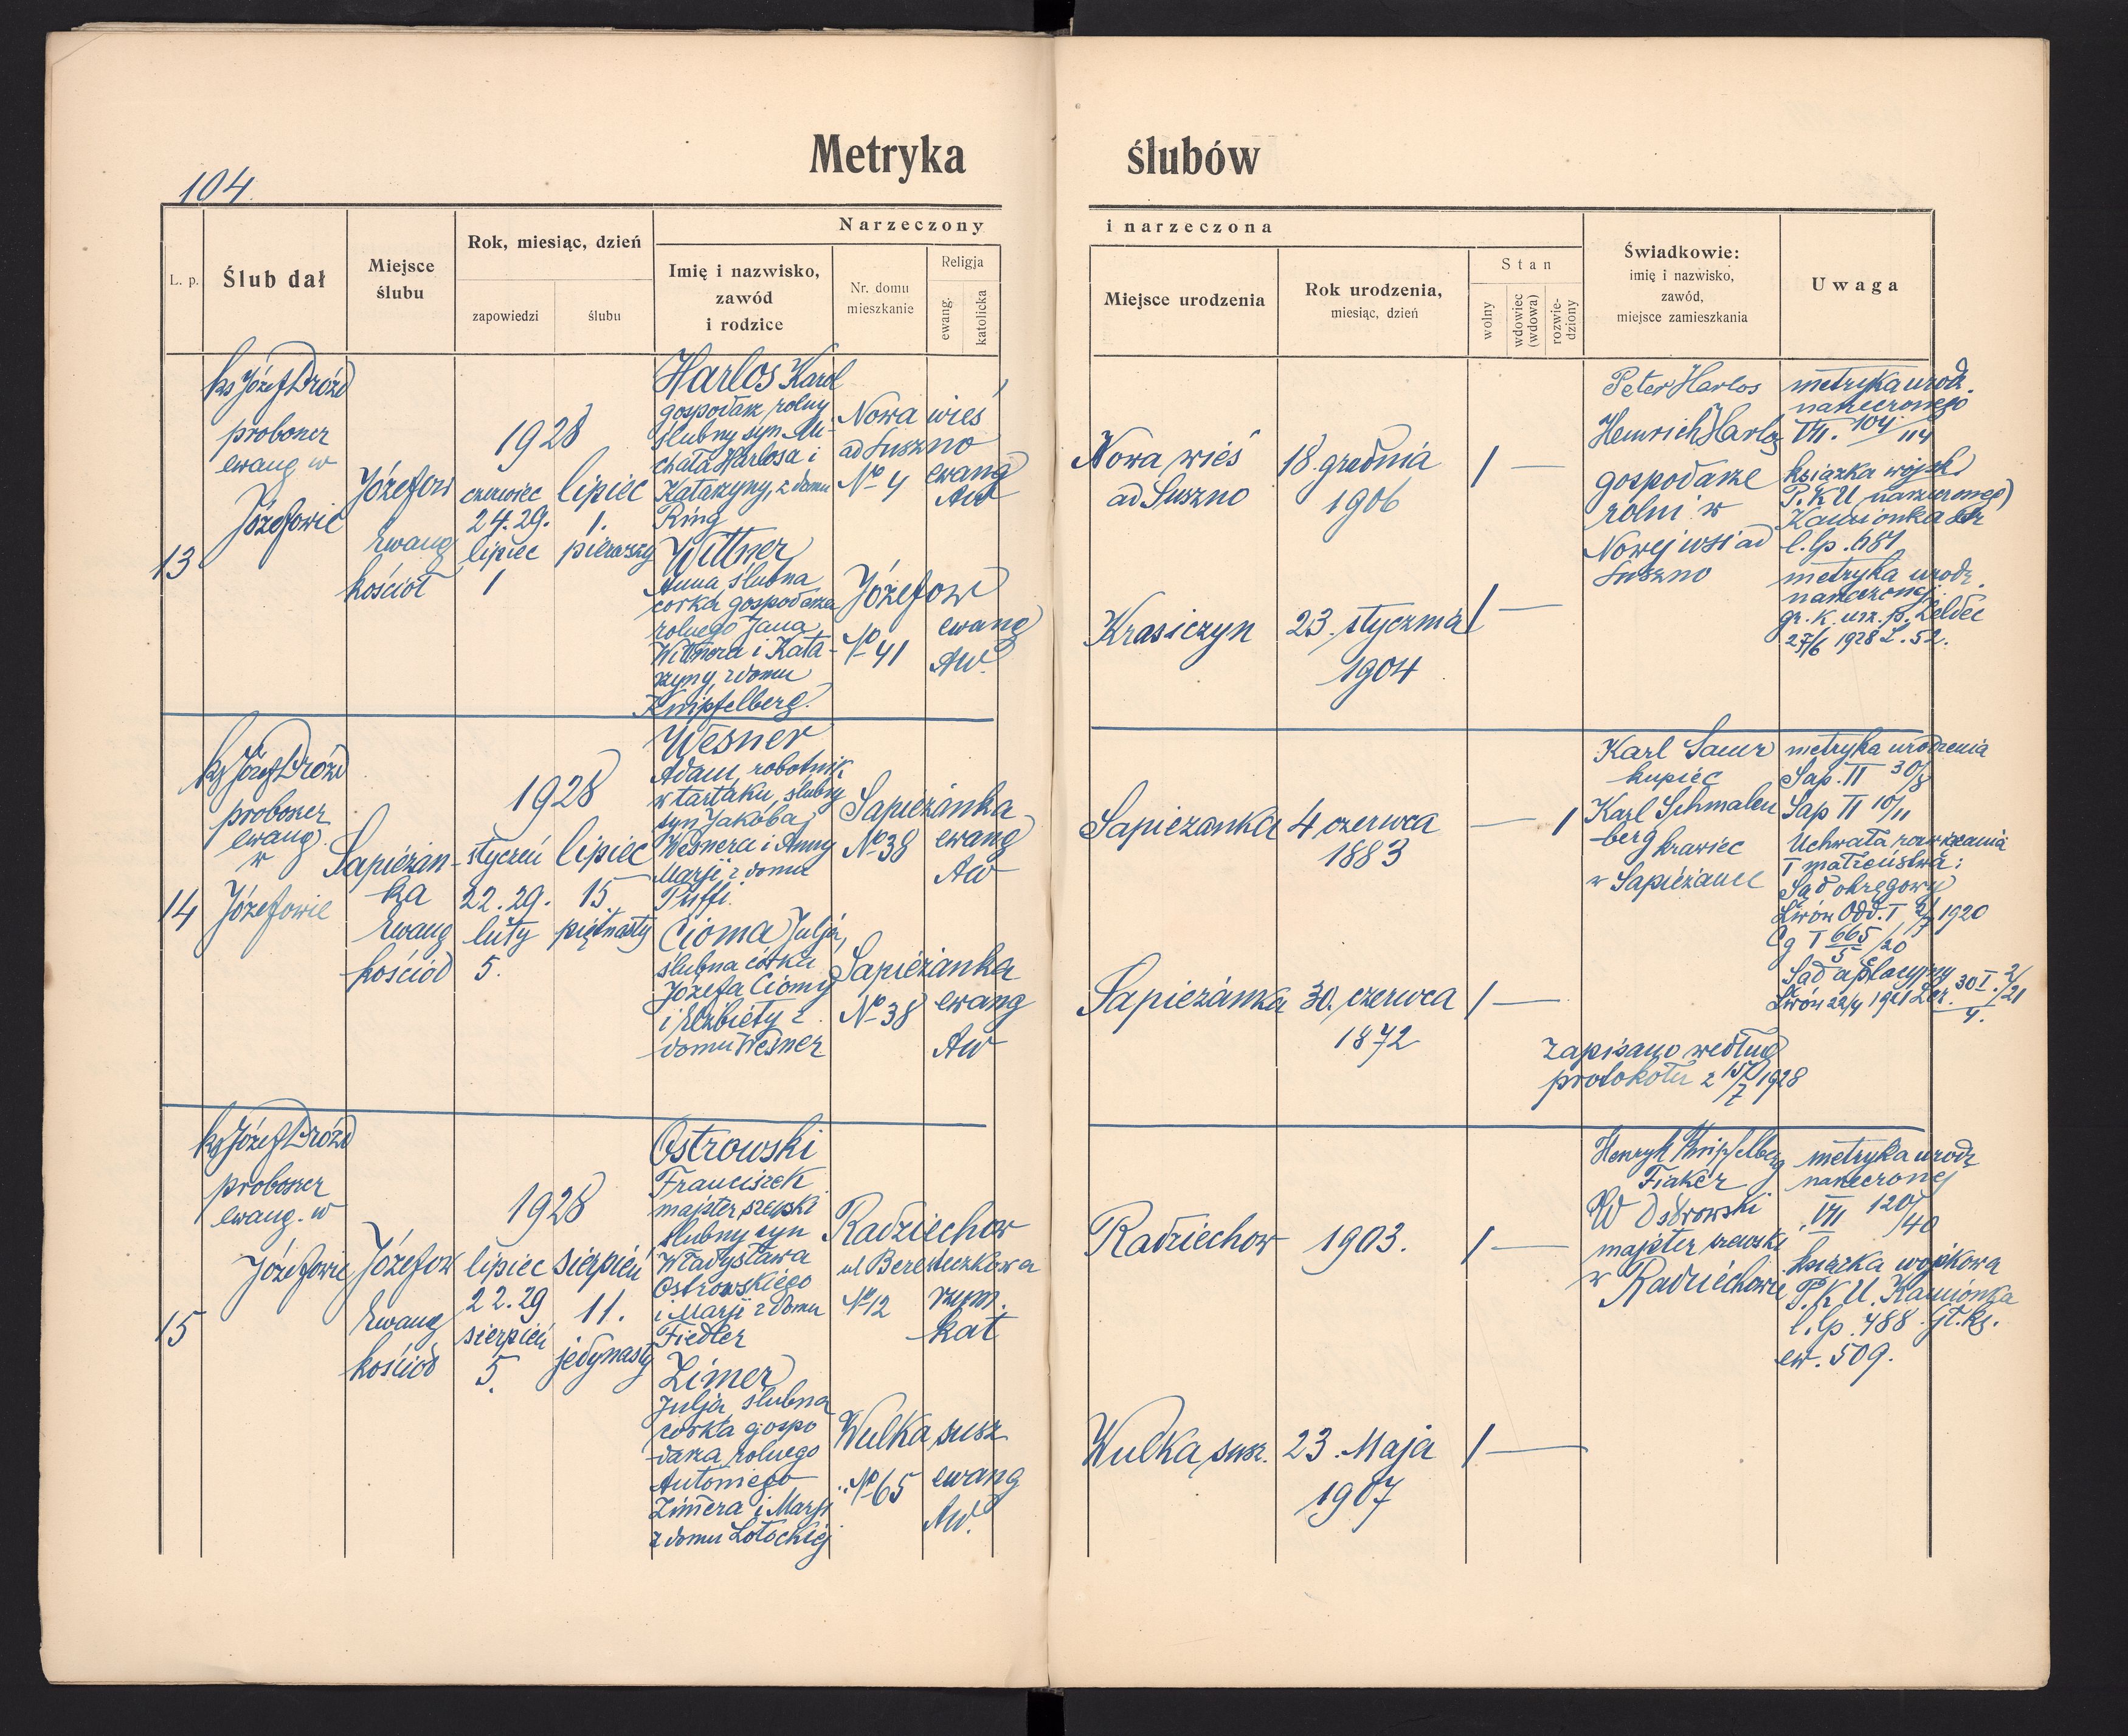 Metryka ślubów
104.
L. p.
Ślub dał
Miejsce
ślubu
Rok, miesiąc, dzień
zapowiedzi
ślubu
Narzeczony
Imię i nazwisko,
zawód
i rodzice
Nr. domu
mieszkanie
Religja
ewang.
katolicka
i narzeczona
Miejsce urodzenia
Rok urodzenia,
miesiąc, dzień
Stan
wolny
wdowiec
(wdowa)
rozwie-
dziony
Świadkowie:
imię i nazwisko,
zawód,
miejsce zamieszkania
Uwaga
13
ks Józef Dróżd
proboszcz
ewang w
Józefowie
Józefow
Ewang
kościoł
1928
czerwiec
24. 29.
lipiec
1
lipiec
1.
pierwszy
Harlos Karol
gospodarz rolny
ślubny syn Mi-
chała Harlosa i
Katarzyny, z domu
Ring
Nowa wieś
ad Suszno
No 4
ewang
AW
Nowa wieś
ad Suszno
18. grudnia
1906
1 —
Wittner
Anna ślubna
corka gospodarza
rolnego Jana
Wittnera i Kata-
rzyny z domu
Knipfelberg.
Józefow
No 41
ewang
AW.
Krasiczyn
23. stycznia
1904
1 —
Peter Harlos
Heinrich Harlos
gospodarze
rolni w
Nowej wsi ad
Suszno
metryka urodz.
narzeczonego
VII. 104/114
książka wojsk
P.K.U narzeczonego
Kamionka str
l. lp. 681
metryka urodz.
narzeczonej
gr. k. urz. p. Żeldec
27/6 1928 L. 52.
14
ks Józef Dróżd
proboszcz
ewang
w
Józefowie
Sapieżan-
ka
Ewang
kościoł
1928
styczeń
22. 29.
luty
5.
lipiec
15.
piętnasty
Wesner
Adam, robotnik
w tartaku, ślubny
syn Jakóba
Wesnera i Anny
Marji z domu
Puffi.
Sapieżanka
No 38
ewang
AW
Sapieżanka
4 czerwca
1883
— 1
Cioma Julja,
ślubna córka
Józefa Ciomy
i Elżbiety z
domu Wesner
Sapieżanka
No 38
ewang
AW
Sapieżanka
30. czerwca
1872
1 —
Karl Sauer
kupiec
Karl Schmalen
berg krawiec
w Sapieżance
metryka urodzenia
Sap. II 30/8
Sap II 10/11
Uchwała rozwiązania
I małżeństwa:
Sąd okręgowy
Lwów Odd. I 1920
Cg I 665/20
5
Sąd apelacyjny
Lwów 22/4 1921
Zapisano według
protokołu z 15/7 1928
15
ks Józef Dróżd
proboszcz
ewang. w
Józefowie
Józefow
Ewang
kościoł
1928
lipiec
22. 29
sierpień
5.
sierpień
11.
jedynasty
Ostrowski
Franciszek
majster szewski
ślubny syn
Władysława
Ostrowskiego
i Marji z domu
Fiedler
Radziechow
No 12
rzym.
kat
Radziechow
1903.
1 —
Zimer
Julja ślubna
corka gospo
darza rolnego
Antoniego
Zimera i Marji
z domu Łotockiej
Wulka susz
No 65
ewang
AW.
Wulka susz.
23. Maja
1907
1 —
Henryk Knipfelberg
Fiaker
W Ostrowski
majster szewski
w Radziechowie
metryka urodz
narzeczonej
VII 120/40
książka wojskowa
P.K.U. Kamionka
l. lp. 488. gł. ks.
ew. 509.